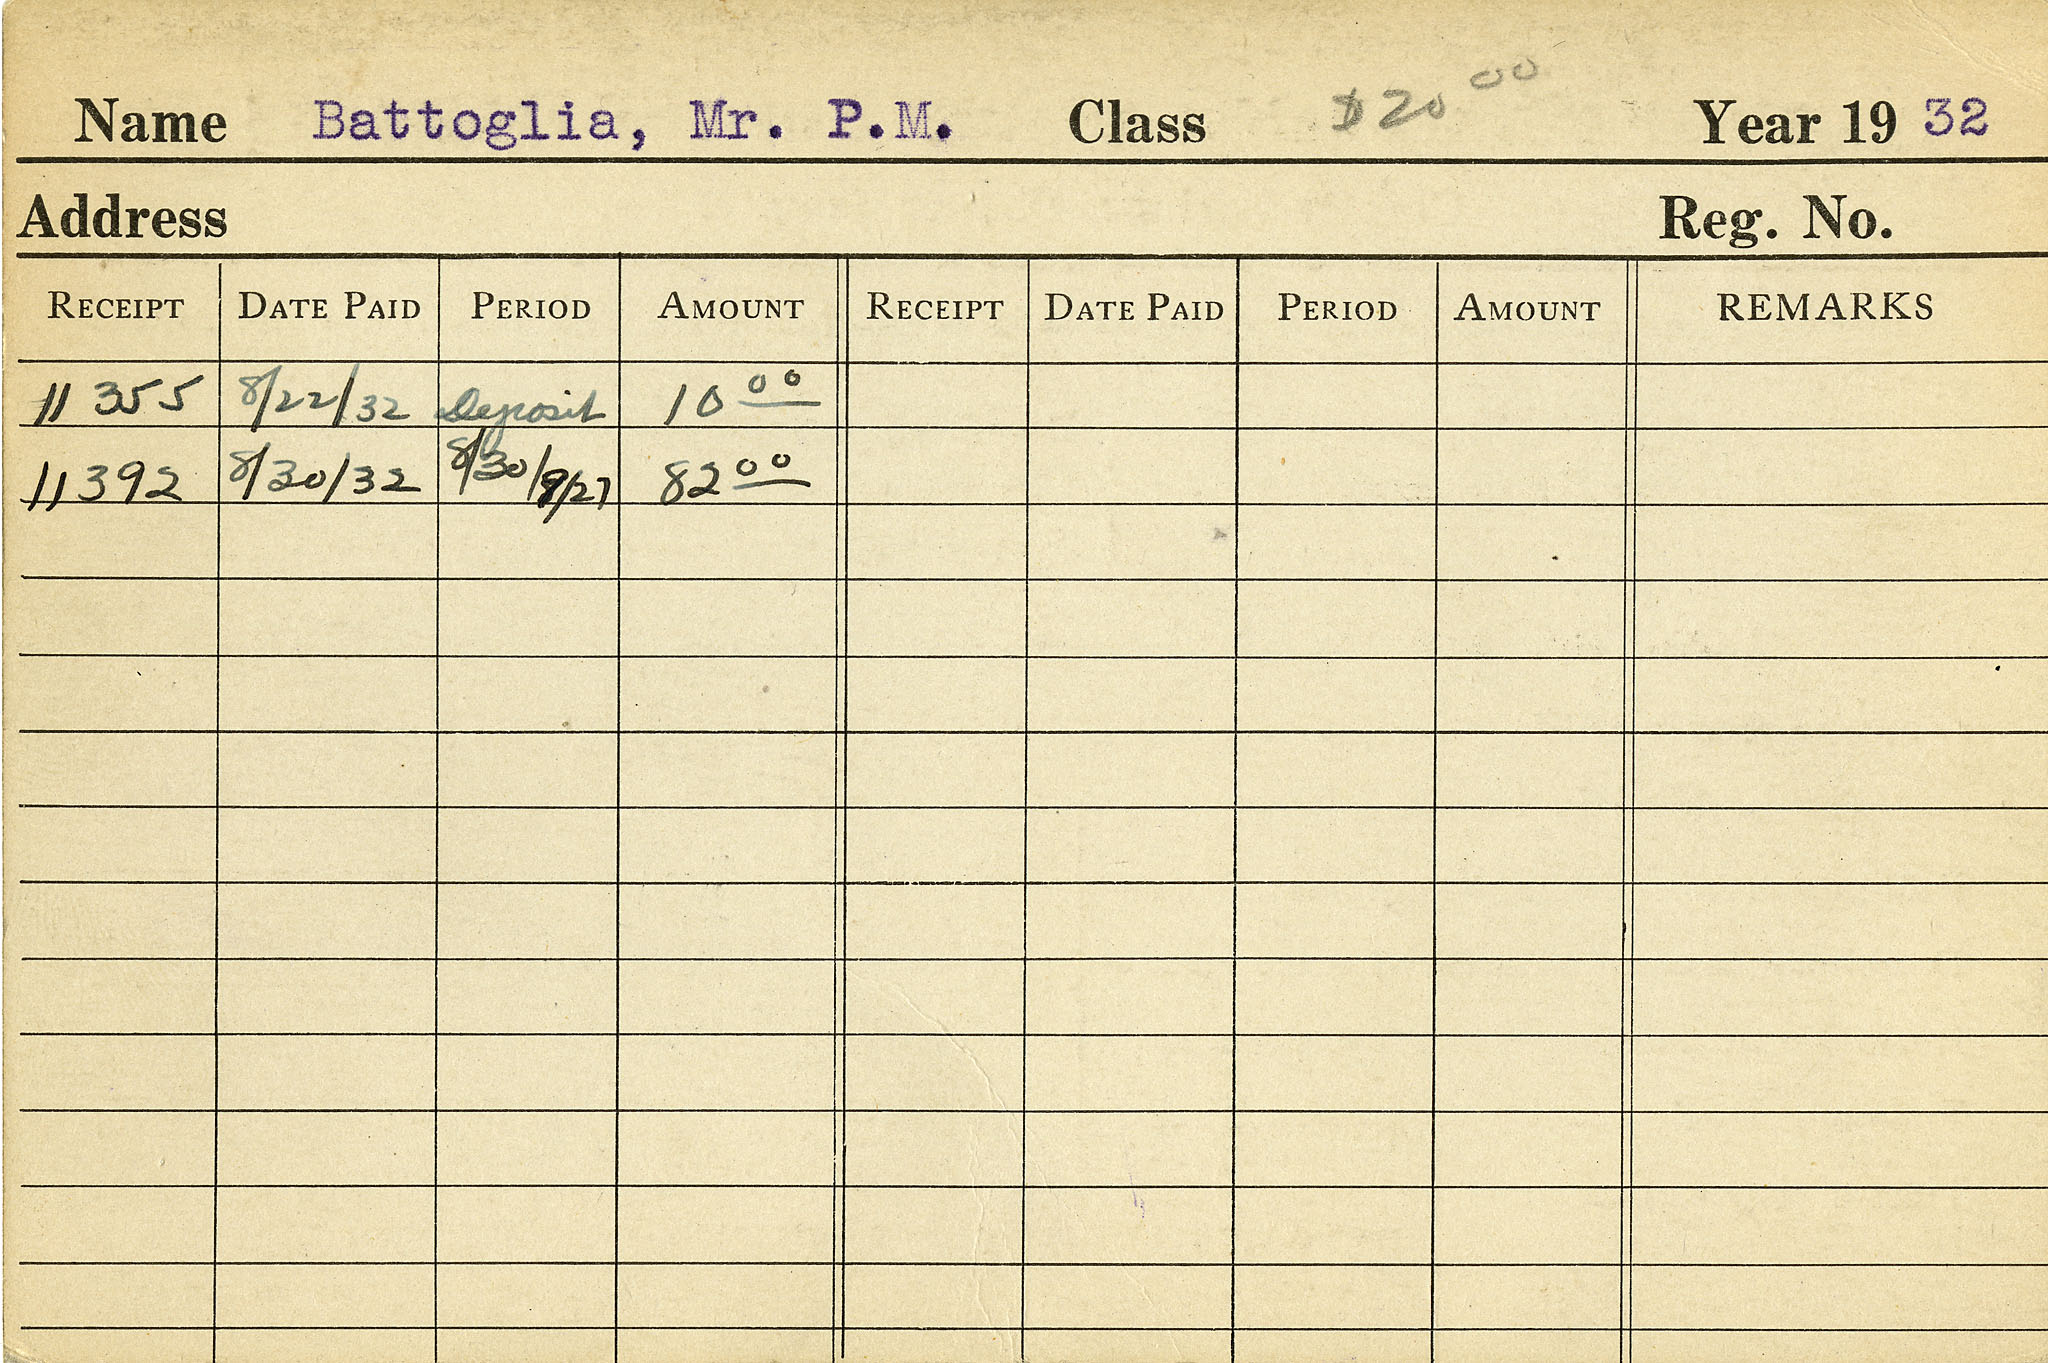 Name Battoglia, Mr. P.M. Class $20 00 Year 19 32
Address Reg. No.
RECEIPT DATE PAID PERIOD AMOUNT RECEIPT DATE PAID PERIOD AMOUNT REMARKS
11355 8/22/32 Deposit 10 00
11392 8/30/32 8/30/9/27 82 00